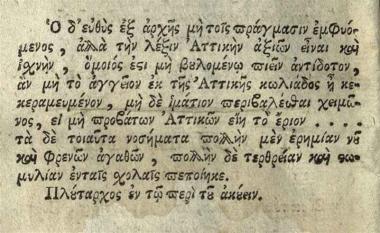 Ὁ δ᾽ εὐθὺς ἐξ ἀρχῆς μὴ τοῖς πράγμασιν ἐμφυό-
μενος, ἀλλὰ τὴν λέξιν Ἀττικὴν ἀξιῶν εἶναι καὶ
ἰσχνὴν, ὅμοιός ἐστι μὴ βουλομένῳ πιεῖν ἀντίδοτον,
ἂν μὴ τὸ ἀγγεῖον ἐκ τῆς Ἀττικῆς κωλιάδος ᾖ κε-
κεραμευμένον, μὴ δὲ ἱμάτιον περιβαλέσθαι χειμῶ-
νος, εἰ μὴ προβάτων Ἀττικῶν εἴη τὸ ἔριον ....
τὰ δὲ τοιαῦτα νοσήματα πολλὴν μὲν ἐρημίαν νοῦ
καὶ φρενῶν ἀγαθῶν, πολλὴν δὲ τερθρείαν καὶ στω-
μυλίαν ἐνταῖς σχολαῖς πεποίηκε.
Πλύταρχος ἐν τῷ περὶ τοῦ ἀκούειν.